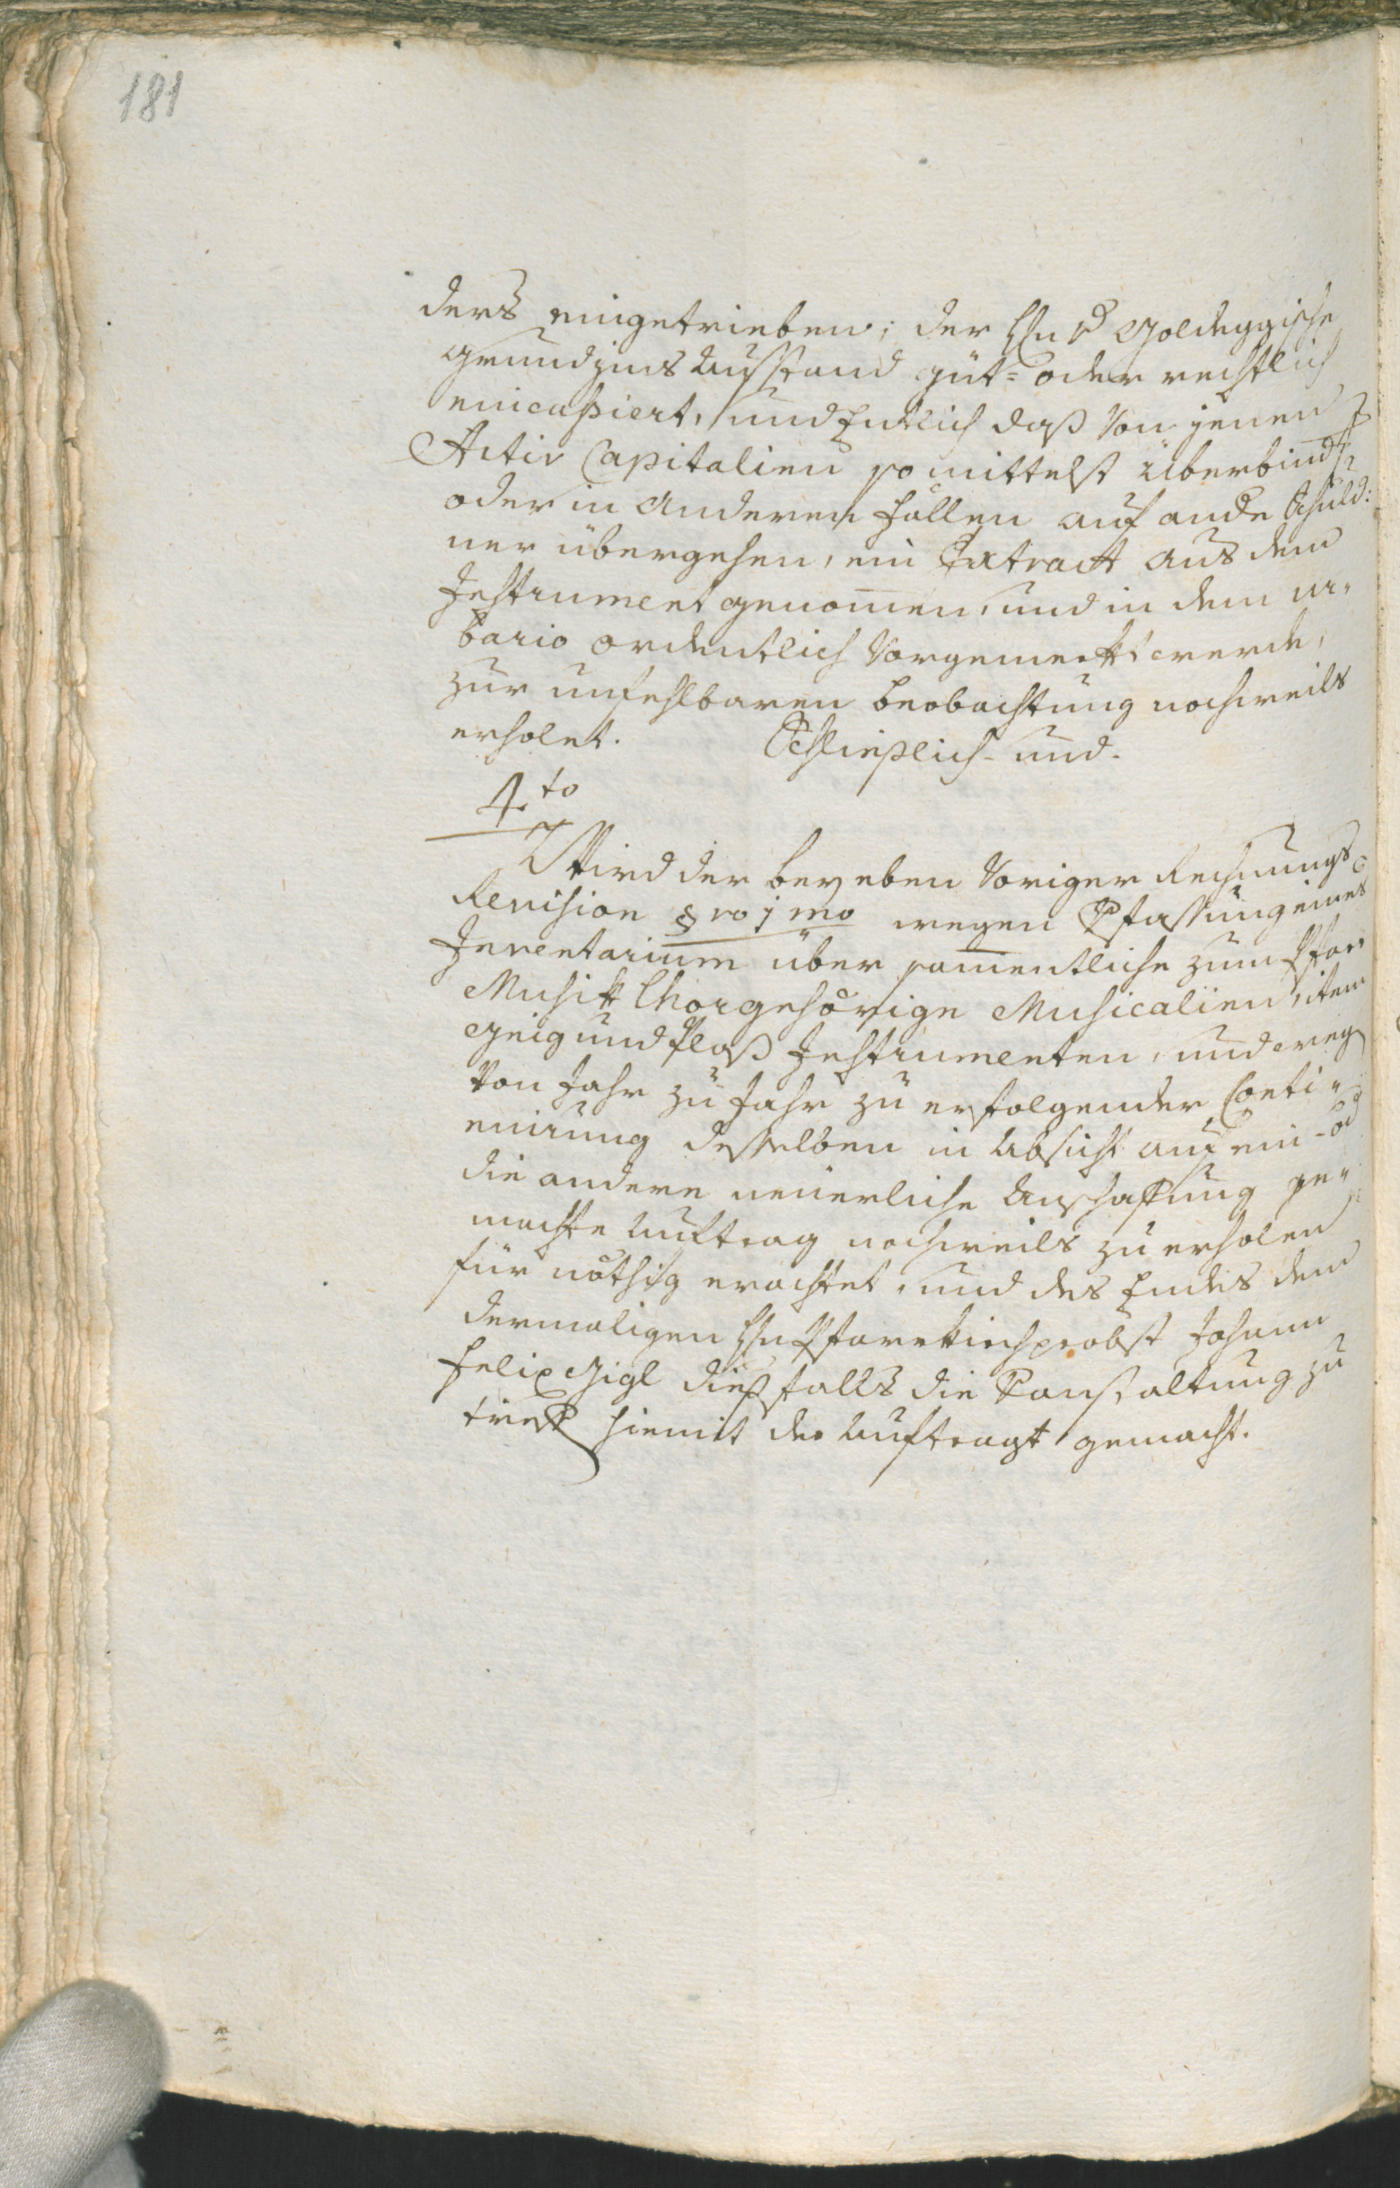 181
ders eingetrieben; der Hr v Goldeggische
Grundzins Ausstand güt= oder rechtlich
eincaßiert, und Endlich daß von jenen
Activ Capitalien so mittelst Überbind
oder in anderen fällen auf ande Schuld:
ner übergehen, ein Extract aus dem
Instrument genomen, und in dem ur,
bario ordentlich Vorgemerkt werde,
zur unfehlbaren beobachtung nochweils
erholet. Schließlich- und-
4.to
Wird der bey eben Voriger Rechnungs
Revision §vo 1mo wegen Vfassung eines
Inventarium über samentliche zum Pfarr
Musik Chor gehörige Musicalien, item
Geig und Plaß Instrumenten, und weg
Von Jahr zu Jahr zu erfolgender Conti„
nuirung desselben in Absicht auf ein- od
die andere neuerliche Anschaffung ge„
machte Auftrag nochweils zu erholen
für nöthig erachtet, und des Endes dem
dermaligen Hn Pfarrkirchprobst Johann
Felix Gigl dießfalls die Vanstaltung zu
treff hiemit der Auftragt gemacht.